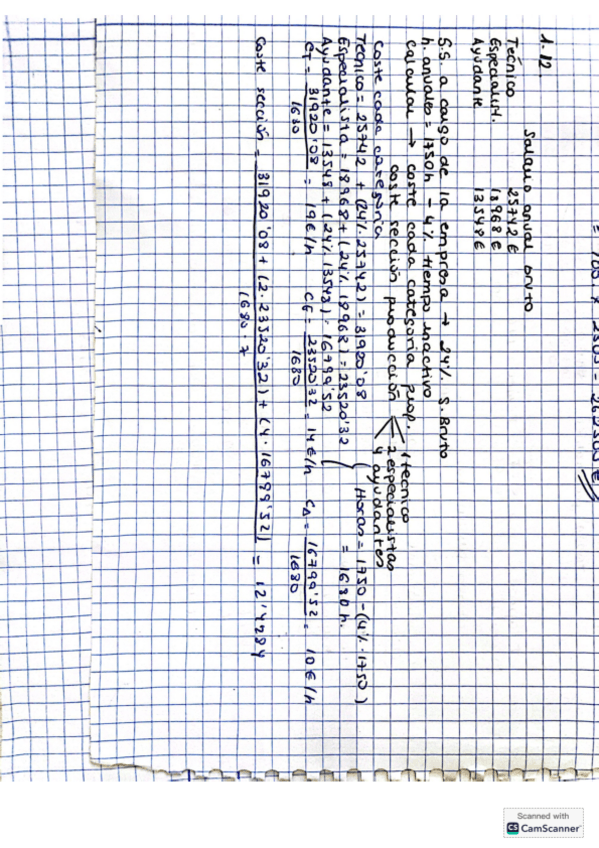 1.12
Salario anual bruto
Técnico 25742 €
Especialist. 18968 €
Ayudante 13548 €
S.S. a cargo de la empresa → 24% S. Bruto
h. anuales = 1750h - 4% tiempo inactivo
Calcular → coste cada categoría prof.
coste sección producción
1 técnico
2 especialistas
4 ayudantes
Coste cada categoría
Técnico = 25742 + (24%.25742) = 31920'08
Especialista = 18968 + (24%.18968) = 23520'32
Ayudante = 13548 + (24%.13548) = 16799'52
Horas = 1750 - (4%.1750)
= 1680 h.
CT = 31920'08 / 1680 = 19 €/h CE = 23520'32 / 1680 = 14 €/h CA = 16799'52 / 1680 = 10 €/h
Coste sección = 31920'08 + (2.23520'32) + (4.16799'52) / 1680.7 = 12'4284
Scanned with
CS CamScanner